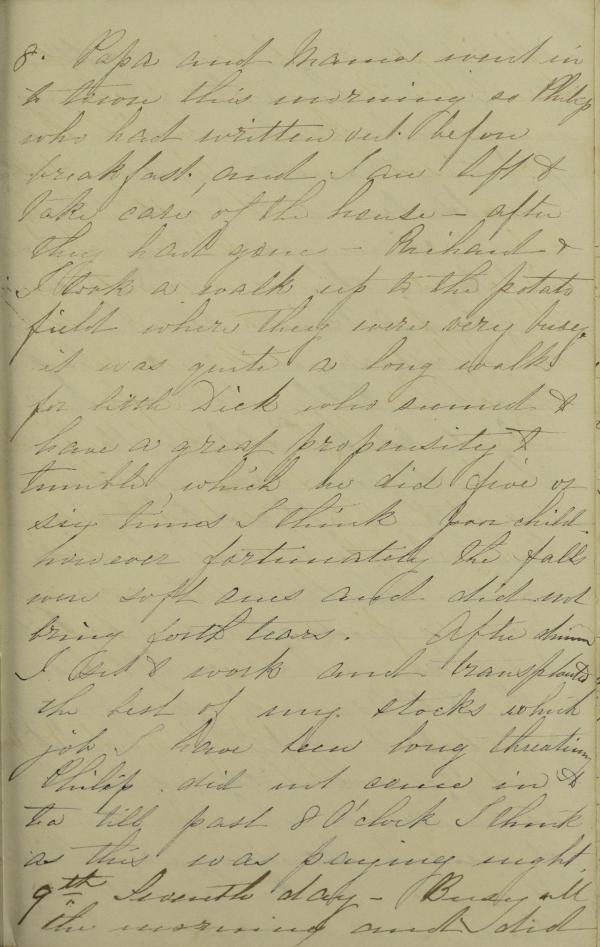 8. Papa and Mama went in
to town this morning so Philip
who had written out before
breakfast, and I are left to
take care of the house - after
they had gone - Richard &
I took a walk up to the potato
field where they were very busy,
it was quite a long walk
for little Dick who seemed to
have a great propensity to
tumble, which he did five or
six times I think poor child
however fortunately the falls
were soft ones and did not
bring forth tears. After dinner
I set to work and transplanted
the best of my stocks which
job I have been long threatening
Philip did not come in to
tea till past 8 O'clock I think
as this was paying night.
9th Seventh day - Busy all
the morning and did